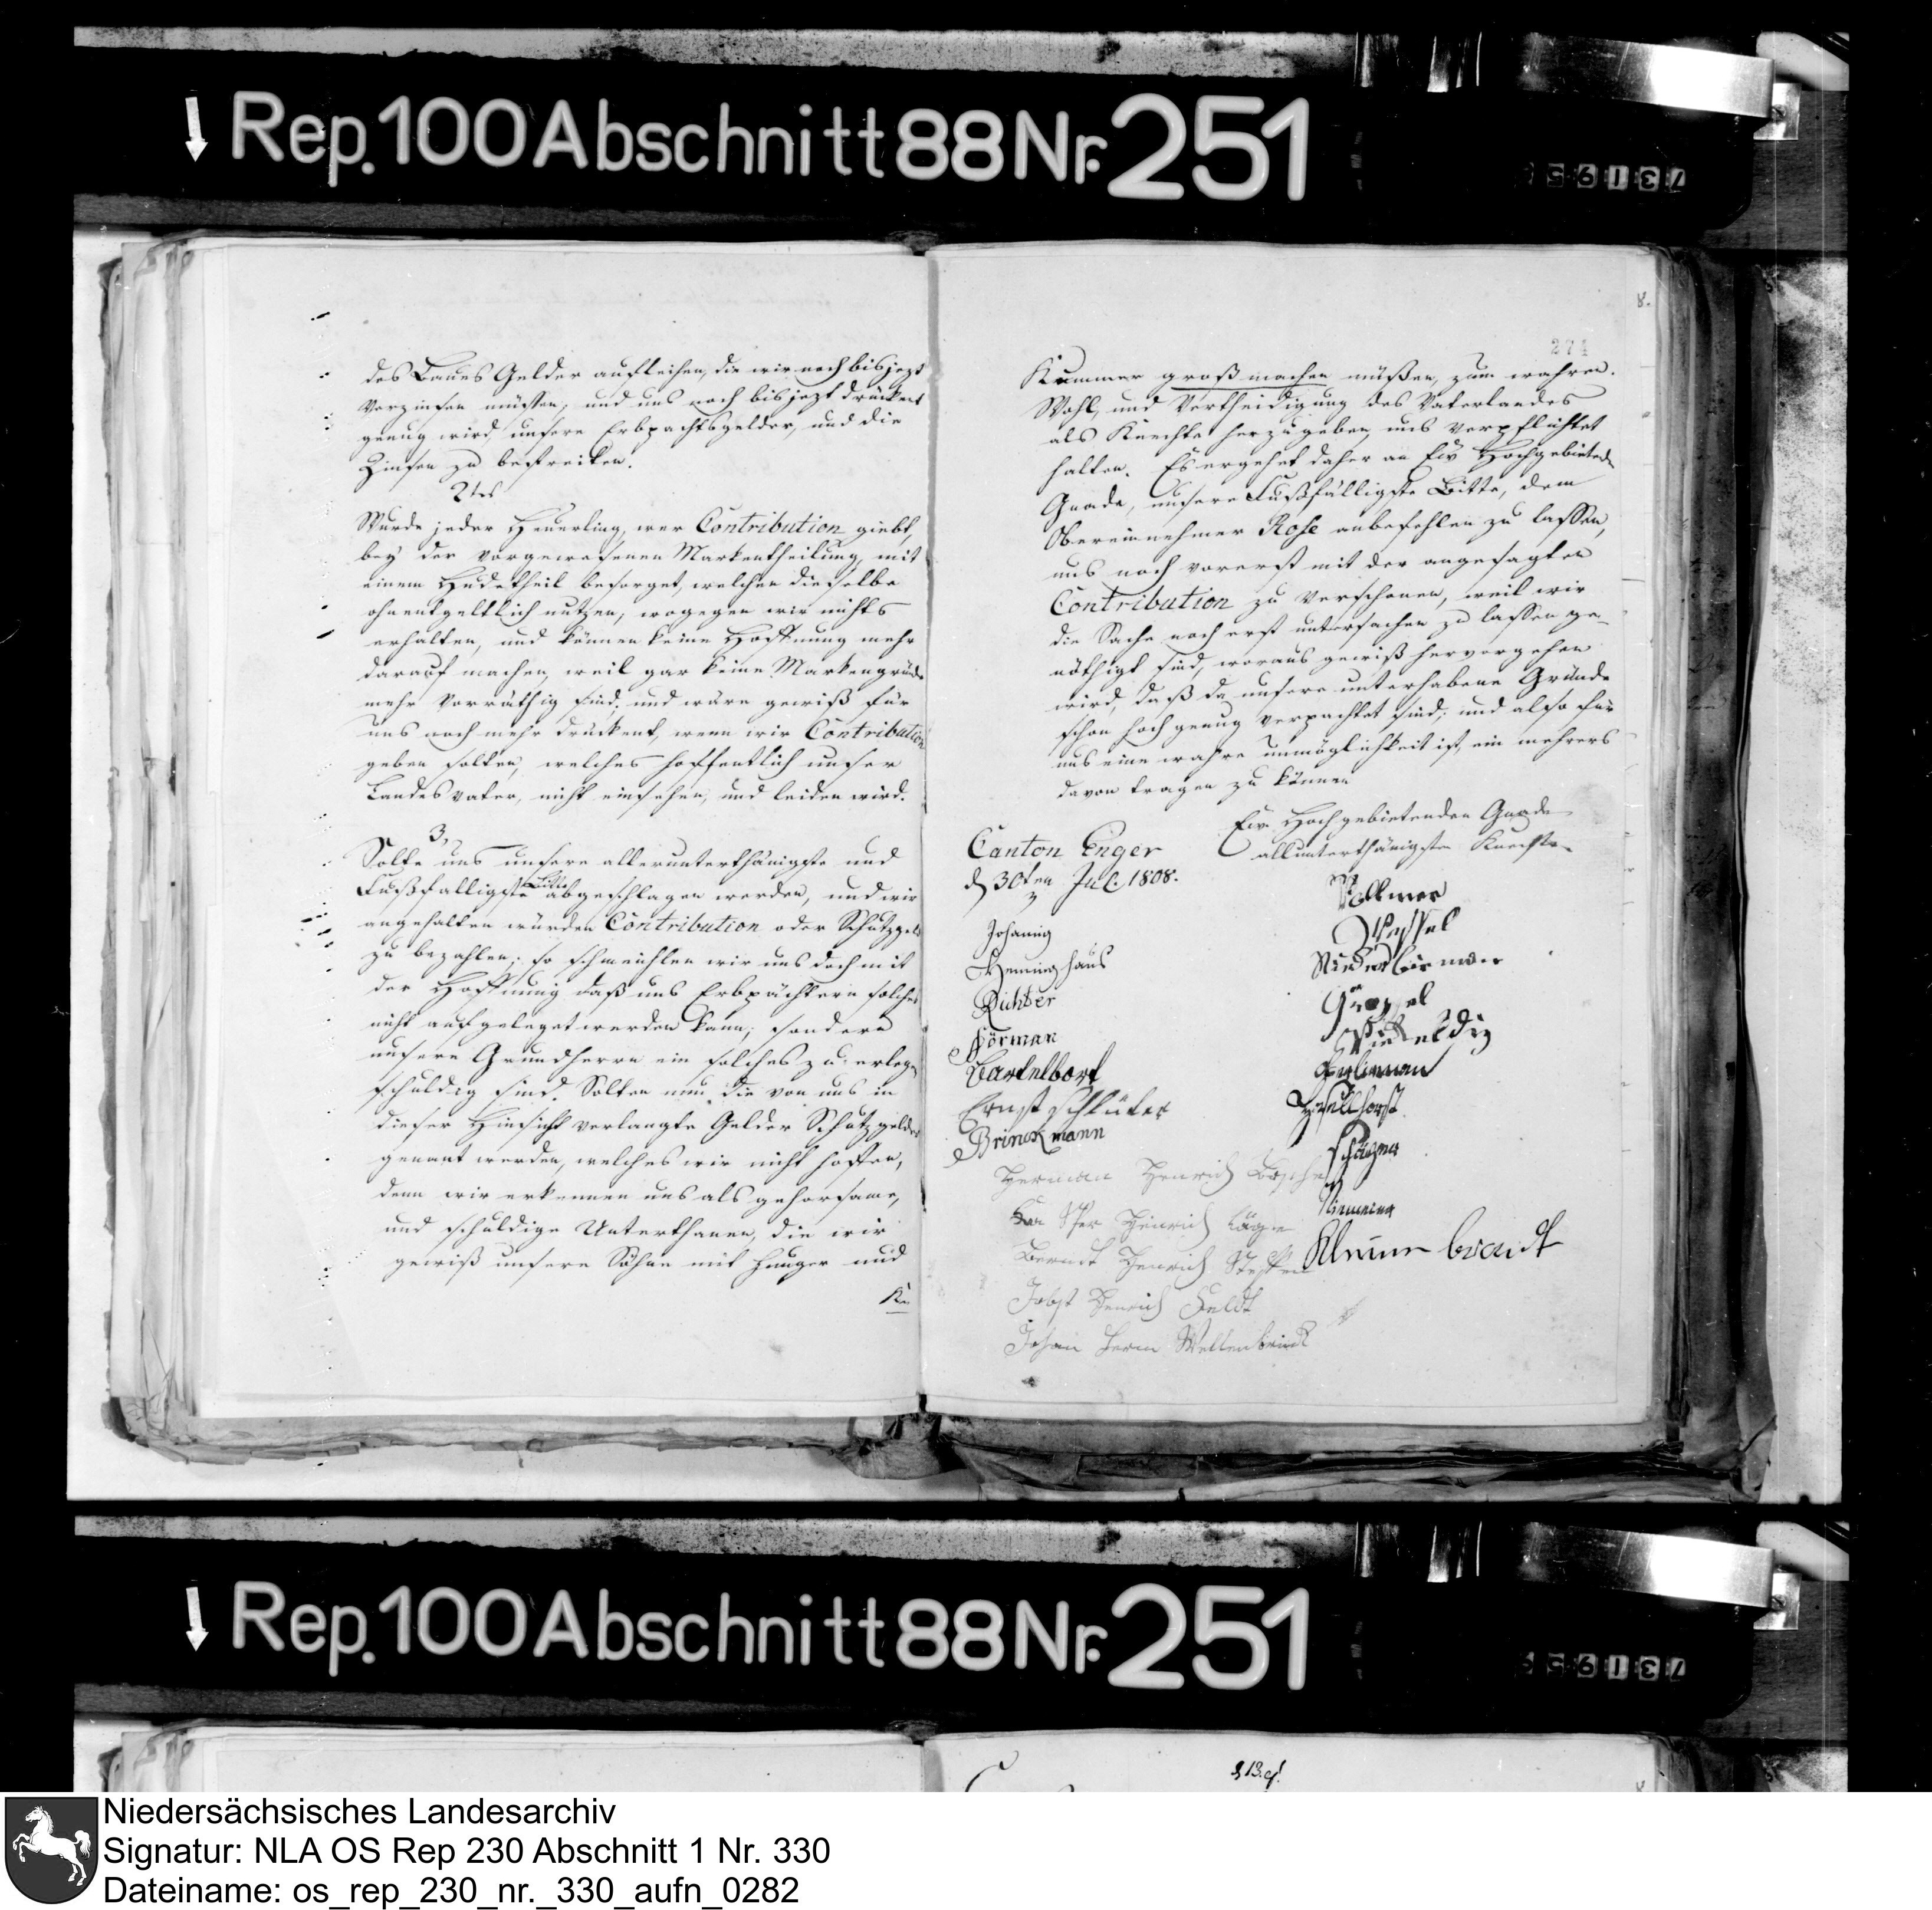 Rep. 100 Abschnitt 88 Nr. 251
des Baues Gelder aufleihen, die wir noch bis jezt
verzinsen müssen, und uns noch bis jezt drückent
genug wird unsere Erbpachtsgelder, und die
Zinsen zu bestreiten.
2tes
Wurde jeder Heuerling, wer Contribution giebt,
bey der vorgewesenen Markentheilung, mit
einem Hudetheil besorget, welchen dieselbe
ohnentgeltlich nutzen, wogegen wir nichts
erhalten, und können keine Hoffnung mehr
darauf machen, weil gar keine Markengründe
mehr vorräthig sind; und wäre gewiß für
uns noch mehr drückent, wenn wir Contribution
geben solten, welches hoffentlich unser
Landesvater, nicht einsehen, und leiden wird.
3,
Solte uns unsere allerunterthänigste und
Fußfalligste Bitte abgeschlagen werden, und wir
angehalten würden Contribution oder Schutzgeld
zu bezahlen; so schmeichlen wir uns doch mit
der Hoffnung daß uns Erbpächtern solches
nicht aufgeleget werden kann; sondern
unsere Grundherrn ein solches zu erlegen
schuldig sind. Solten nun die von uns in
dieser Hinsicht verlangte Gelder Schutzgelder
genant werden, welches wir nicht hoffen,
denn wir erkennen uns als gehorsame,
und schuldige Unterthanen, die wir
gewiß unsere Söhne mit Hunger und
Ku
274
8.
Kummer groß machen müßen, zum wahren
Wohl, und Vertheidigung des Vaterlandes
als Knechte herzugeben, uns verpflichtet
halten. Es ergehet daher an Ew Hochgebietende
Gnade, unsere Fußfälligste Bitte, dem
Obereinnehmer Rose anbefehlen zu lassen,
uns noch vorerst mit der angesagten
Contribution zu verschonen, weil wir
die Sache noch erst untersuchen zu lassen ge-
nöthigt sind, woraus gewiß hervorgehen
wird, daß da unsere unterhabene Gründe
schon hoch genug verpachtet sind; und also für
uns eine wahre unmöglichkeit ist, ein mehrers
davon tragen zu können
Ew. Hochgebietenden Gnade
allunterthänigste Knechte
Canton Enger
d 30ten Jul. 1808.
Johannig
Henninghaus
Richter
Hörman
Bartelbort
Ernst Schlüter
Brinckmann
Herman Henrich
Henrich
Berendt Henrich
Jobst Henrich Feldt
Johan Herm Wellenbrinck
Vollmer
Wessel
Niederbierman
Heselhorst
Niemeier
Klumbrandt
Rep. 100 Abschnitt 88 Nr. 251
Niedersächsisches Landesarchiv
Signatur: NLA OS Rep 230 Abschnitt 1 Nr. 330
Dateiname: os_rep_230_nr._330_aufn_0282